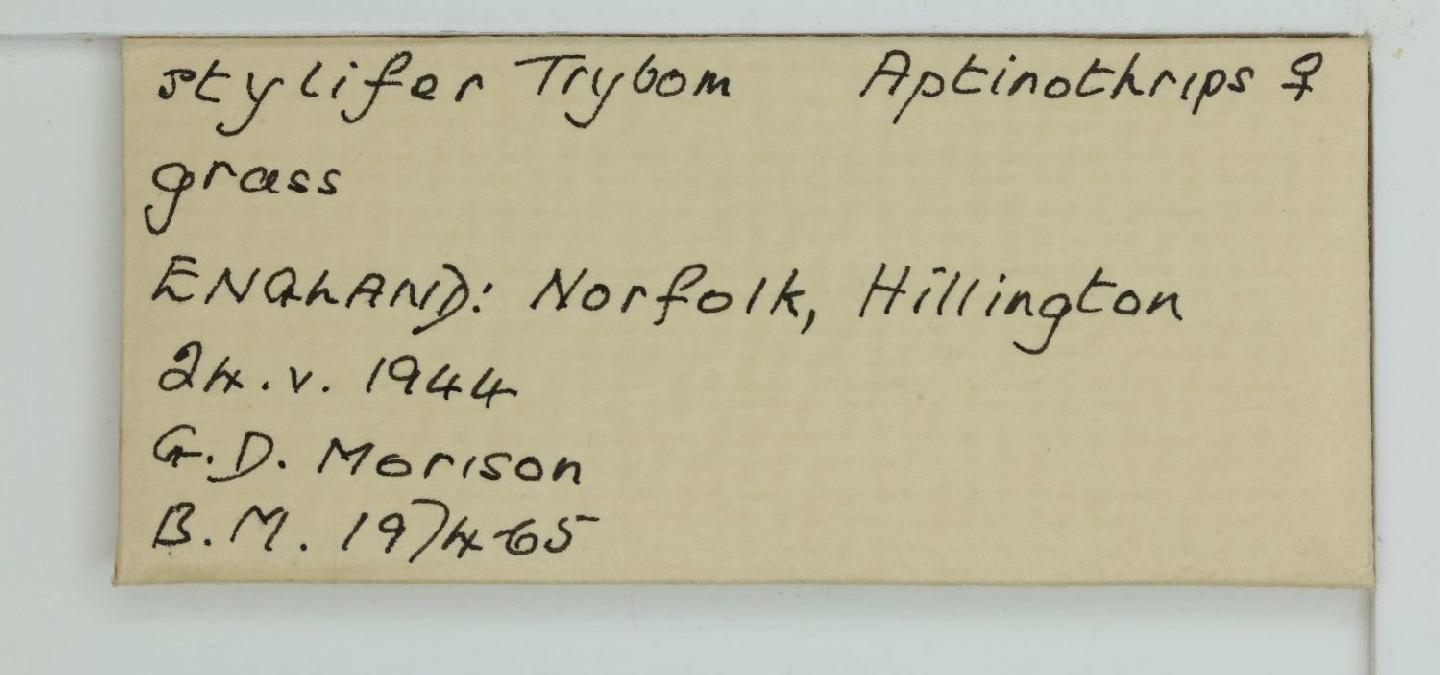 stylifer Trybom Aptinothrips ♀
grass
ENGLAND: Norfolk, Hillington
24.v.1944
G.D. Morison
B.M. 1974-65